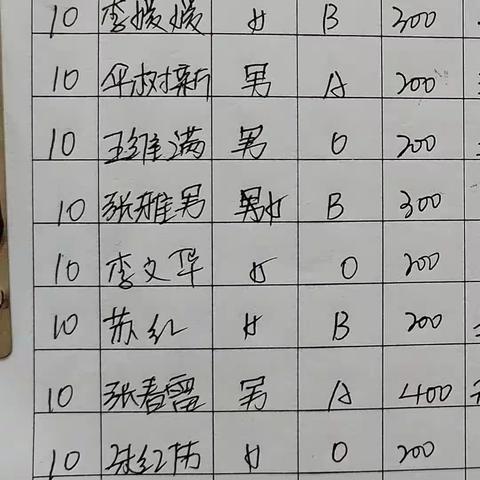 10 李媛媛 女 B 300
10 伞树新 男 A 200
10 王维满 男 O 200
10 张雅男 女 B 300
10 李文华 女 O 200
10 苏红 女 B 200
10 张春雷 男 A 400
10 红 女 O 200